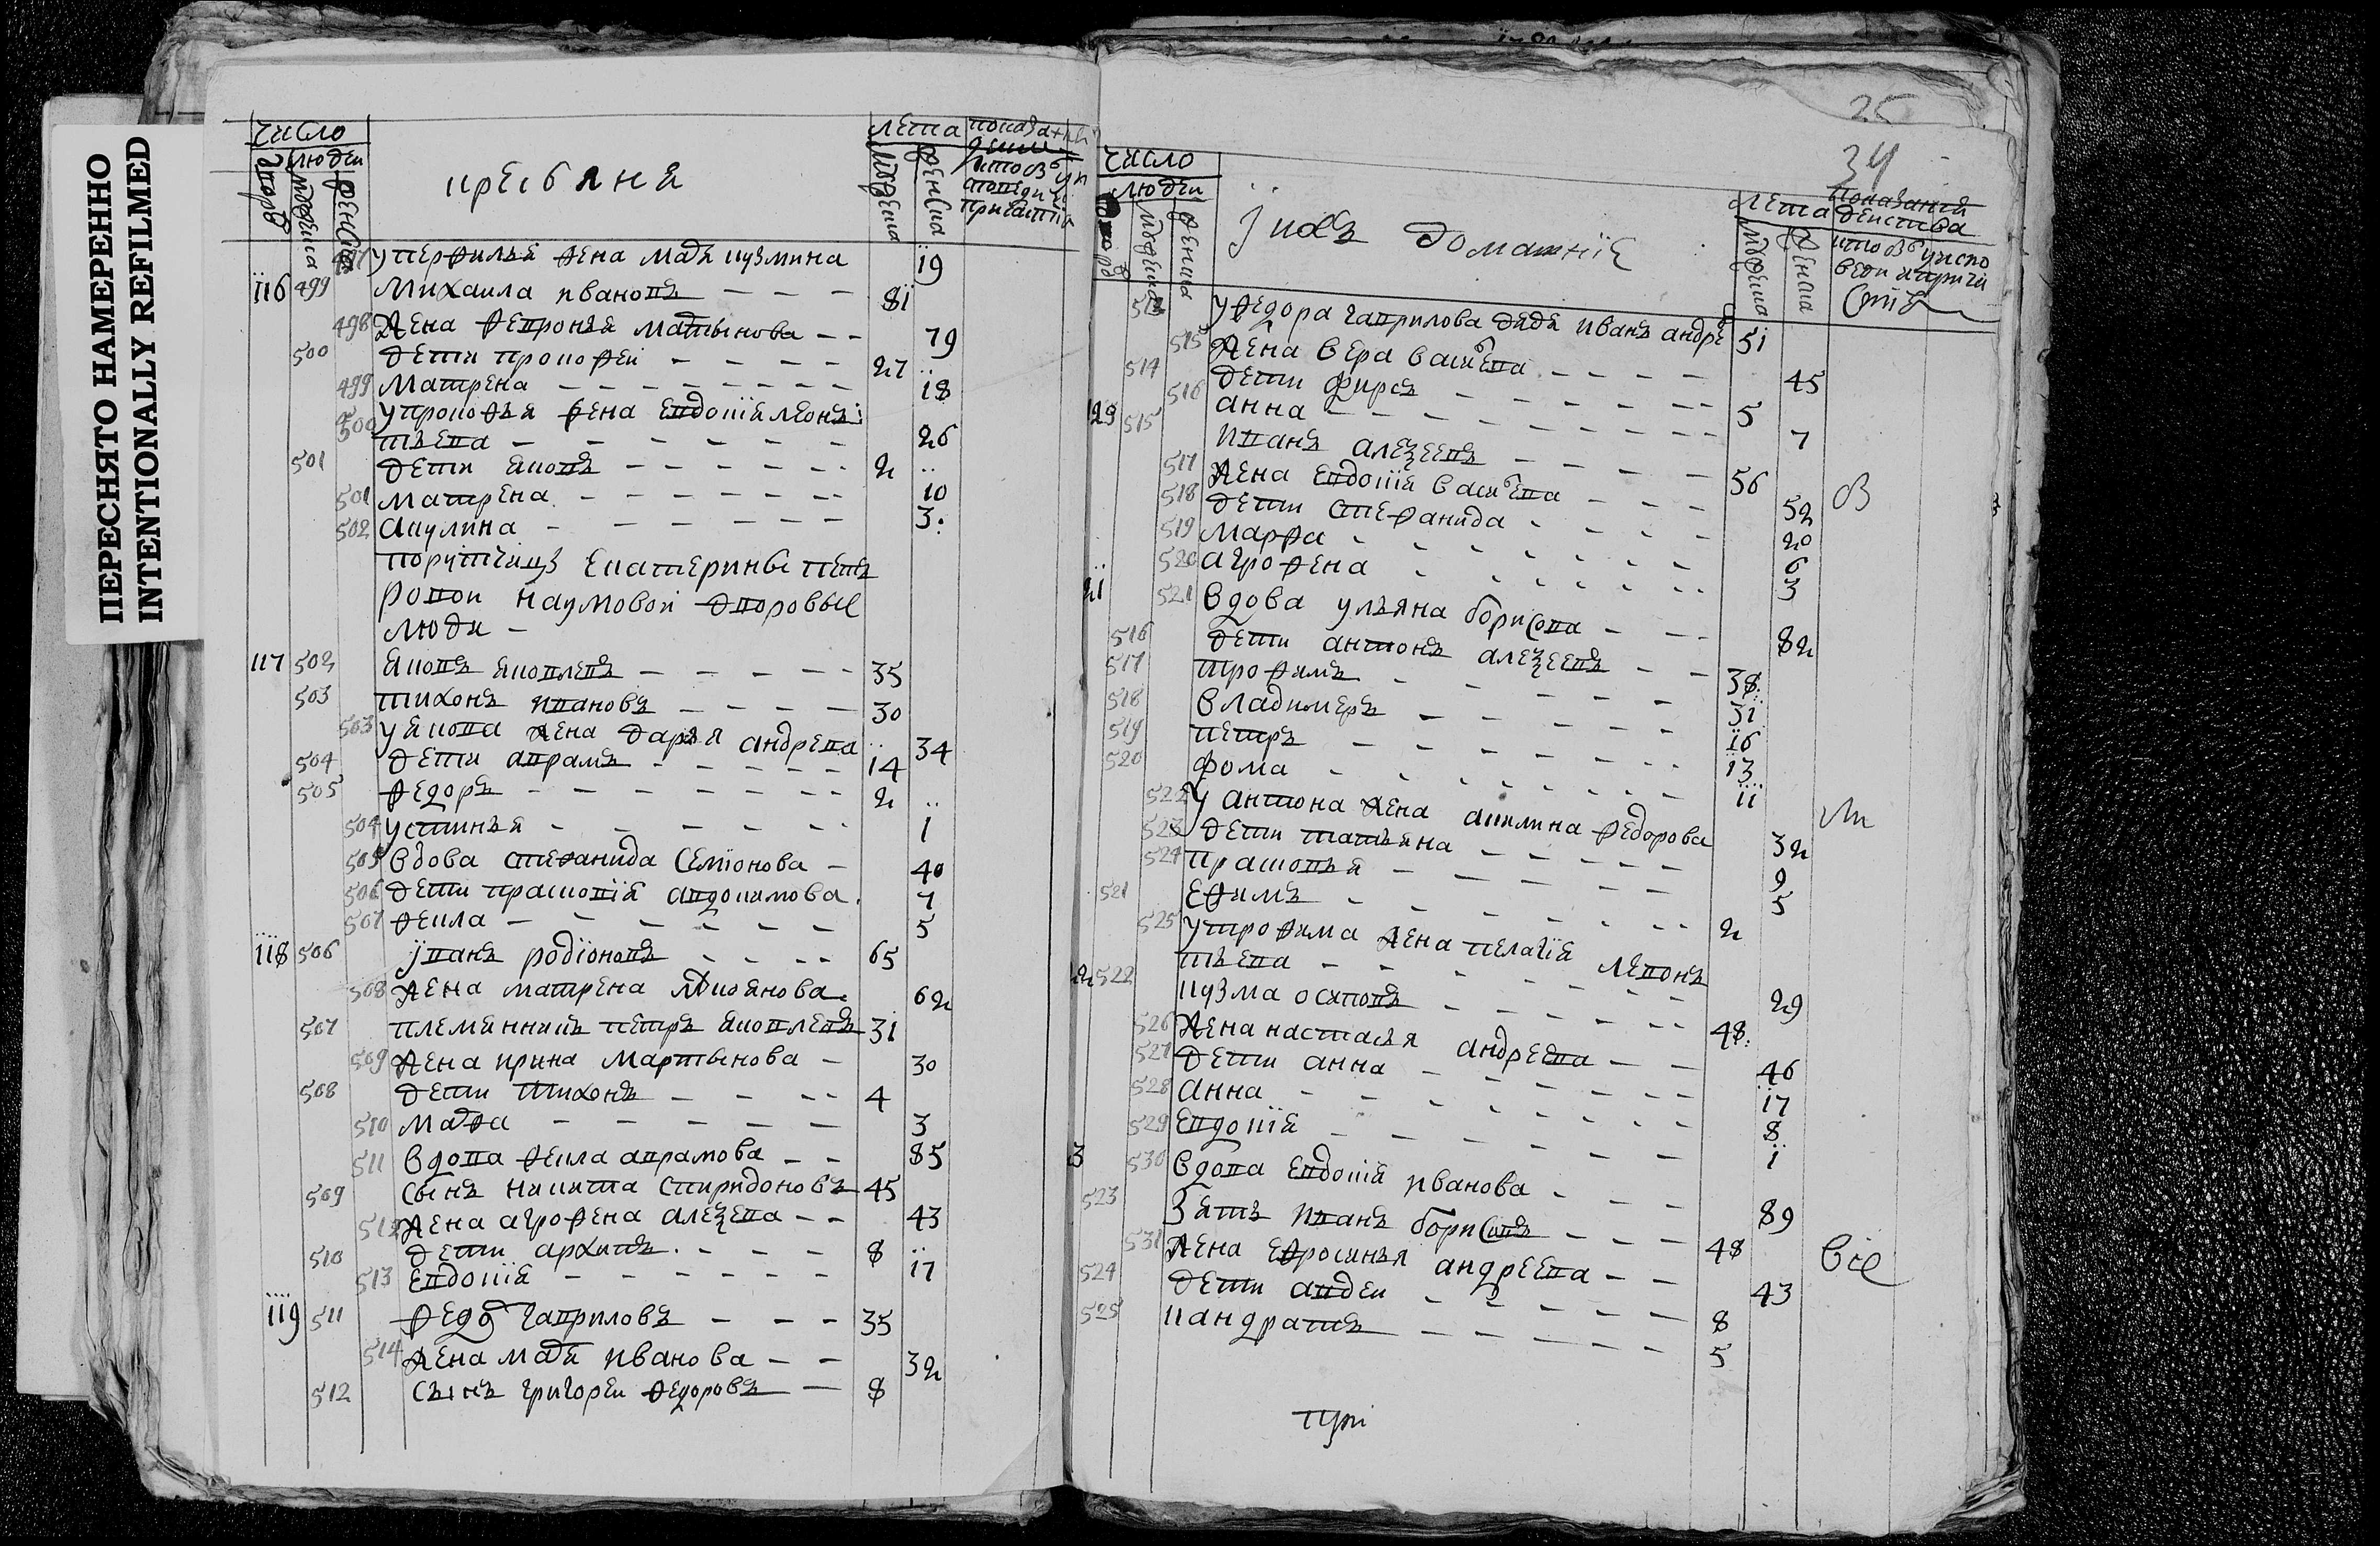 ПЕРЕСНЯТО НАМЕРЕННО
INTENTIONALLY REFILMED
число
людеи
крестьяня
лета
497 жена мавра кузмина 19
116 499 Михаила ивановъ 81
498 Жена февронья мартынова 79
500 дети прокофеи 27
499 Матрена 18
500 у прокофья жена евдокия леонъ
тьева 26
501 дети яковъ 2
501 матрена 10
502 акулина 3
порутчицы екатерины пет
ровои наумовои дворовые
люди
117 502 яковъ яковлевъ 35
503 тихонъ ивановъ 30
503 у якова жена дарья андрева 34
504 дети аврамъ 14
505 федоръ 2
504 устинья 1
505 вдова стефанида семионова 40
506 дети прасковия авдокимова 7
507 фекла 5
118 506 иванъ родионовъ 65
508 жена матрена 62
507 племянникъ петръ яковлевъ 31
509 жена ирина мартынова 30
508 дети тихонъ 4
510 марфа 3
511 вдова фекла аврамова 85
509 сынъ никита спиридоновъ 45
512 жена агрофена алексева 43
510 дети архипъ 8
513 евдокия 17
119 511 федоръ гавриловъ 35
514 жена марья иванова 32
512 сынъ григореи федоровъ 8
25
34
число
людеи
ихъ домашние
лета
513 у федора гаврилова дядя иванъ андре 51
515 жена вера василева 45
514 дети фирсъ 5
516 анна 7
515 иванъ алексеевъ 56
517 жена евдокия василева 52
518 дети стефанида 20
519 марфа 6
520 агрофена 3
521 вдова ульяна борисова 82
516 дети антонъ алексеевъ 38
517 трофимъ 31
518 владимеръ 16
519 петръ 13
520 фома 11
522 у антона жена акилина федорова 32
523 дети татьяна 9
524 прасковья 5
521 ефимъ 2
525 у трофима жена пелагия левонъ
тьева 29
522 кузма осиповъ 48
526 жена настасья андреева 46
527 дети анна 17
528 анна 8
529 евдокия 1
530 вдова евдокия иванова 89
523 зять иванъ борисовъ 48
531 жена ефросинья андреева 43
524 дети авдеи 8
525 кандратъ 5
все